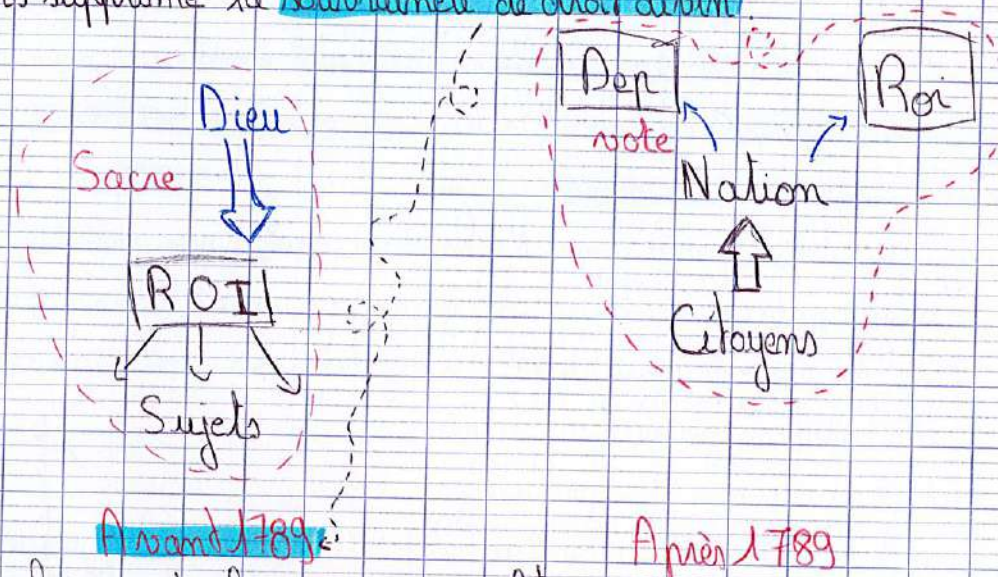 supprime la souveraineté de droit divin
Dieu
Sacre
ROI
Sujets
Avant 1789
Dep
Roi
vote
Nation
Citoyens
Après 1789